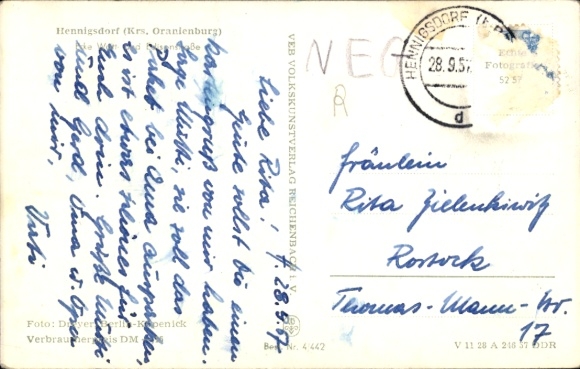 Hennigsdorf (Krs. Oranienburg)
VEB VOLKSKUNSTVERLAG REICHENBACH i. V.
NEG
R
HENNIGSDORF
28.9.57
d
Echte
Fotografie
52 57
H. 28.9.57
Liebe Rita!
Heute sollst Du einen
Kartengruß von mir haben.
Sage Mutti, sie soll das
Paket bei Oma auspacken,
es ist etwas kleines für
Euch drin. Grüße Mutti
und Gerd, Oma u. Opa
von mir,
Fräulein
Rita Zielenkiwitz
Rostock
Thomas-Mann-Str.
17
Foto: Dreyer, Berlin-Köpenick
Verbraucherpreis DM
Best. Nr. 4/442
V 11 28 A 240 57 DDR